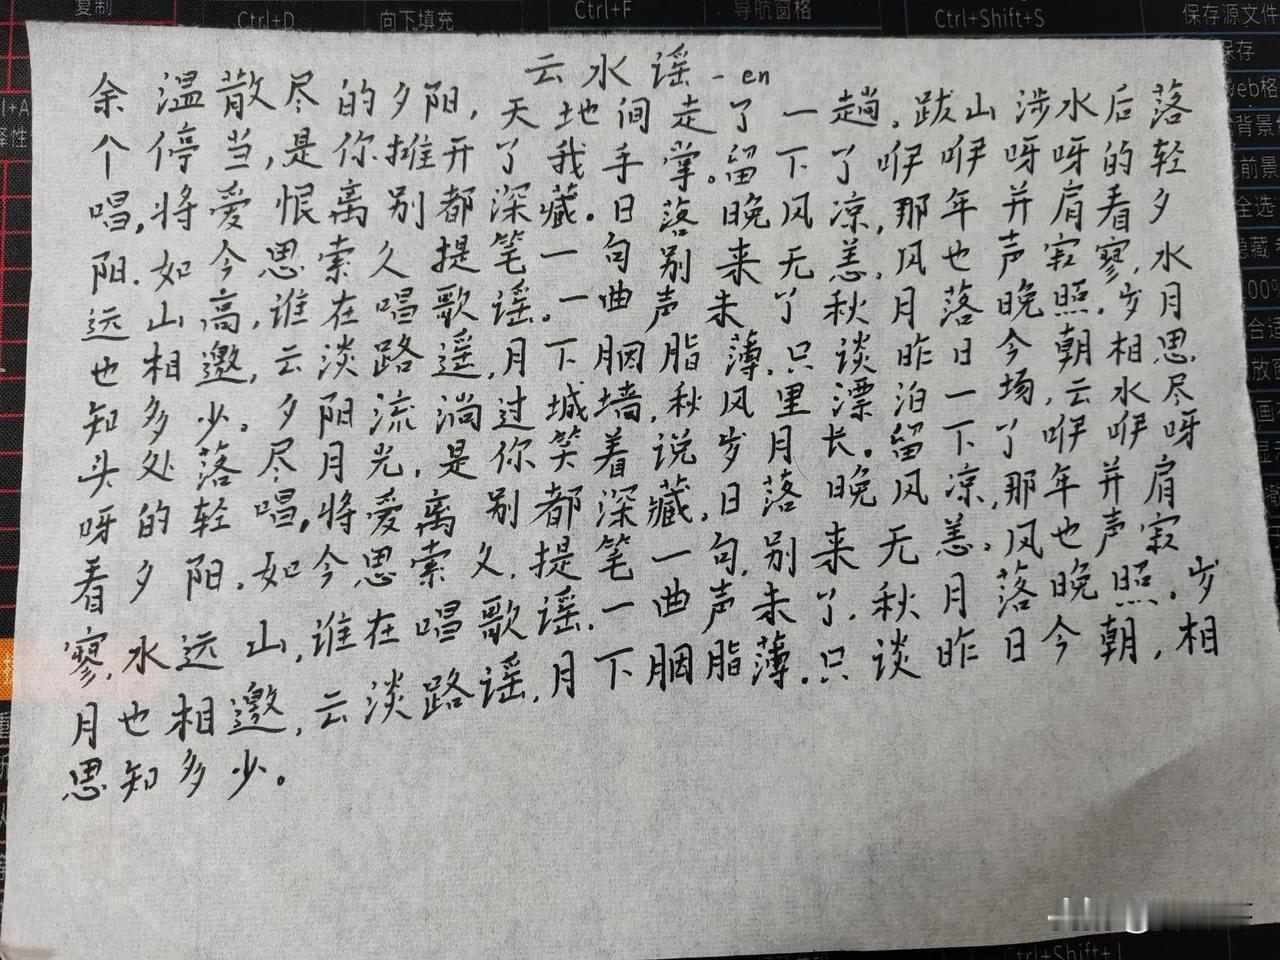 复制
Ctrl+D
向下填充
Ctrl+F
导航窗格
Ctrl+Shift+S
保存源文件
云水谣 - en
余温散尽的夕阳,天地间走了一趟,跋山涉水后落
个停当,是你摊开了我手掌。留下了咿咿呀呀的轻
唱,将爱恨离别都深藏。日落晚风凉,那年并肩看夕
阳.如今思索久提笔一句别来无恙,风也声寂寥,水
远山高,谁在唱歌谣。一曲声未了秋月落晚照.岁月
也相邀,云淡路遥,月下胭脂薄,只谈昨日今朝相思
知多少。夕阳流淌过城墙,秋风里漂泊一场,云水尽
头处落尽月光,是你笑着说岁月长。留下了咿咿呀
呀的轻唱,将爱离别都深藏,日落晚风凉,那年并肩
看夕阳.如今思索久,提笔一句,别来无恙。风也声寂
寥,水远山,谁在唱歌谣.一曲声未了,秋月落晚照.岁
月也相邀,云淡路谣,月下胭脂薄.只谈昨日今朝,相
思知多少。
保存
web格
前景
全选
隐藏
Ctrl+Shift+I